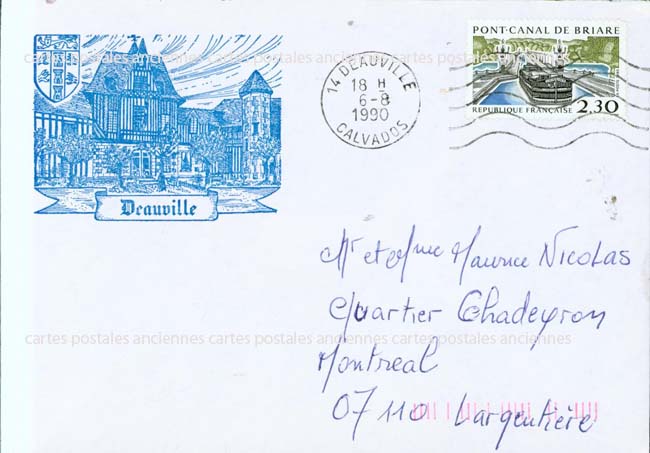 PONT-CANAL DE BRIARE
cartes postales anciennes cartes postales anciennes cartes postales anciennes
14 DEAUVILLE
18 H
6-8
1990
CALVADOS
REPUBLIQUE FRANÇAISE 2,30
Deauville
Mr et Mme Maurice NICOLAS
Quartier Chadeyron
cartes postales anciennes cartes postales anciennes cartes postales anciennes
Montreal
07110 Largentière